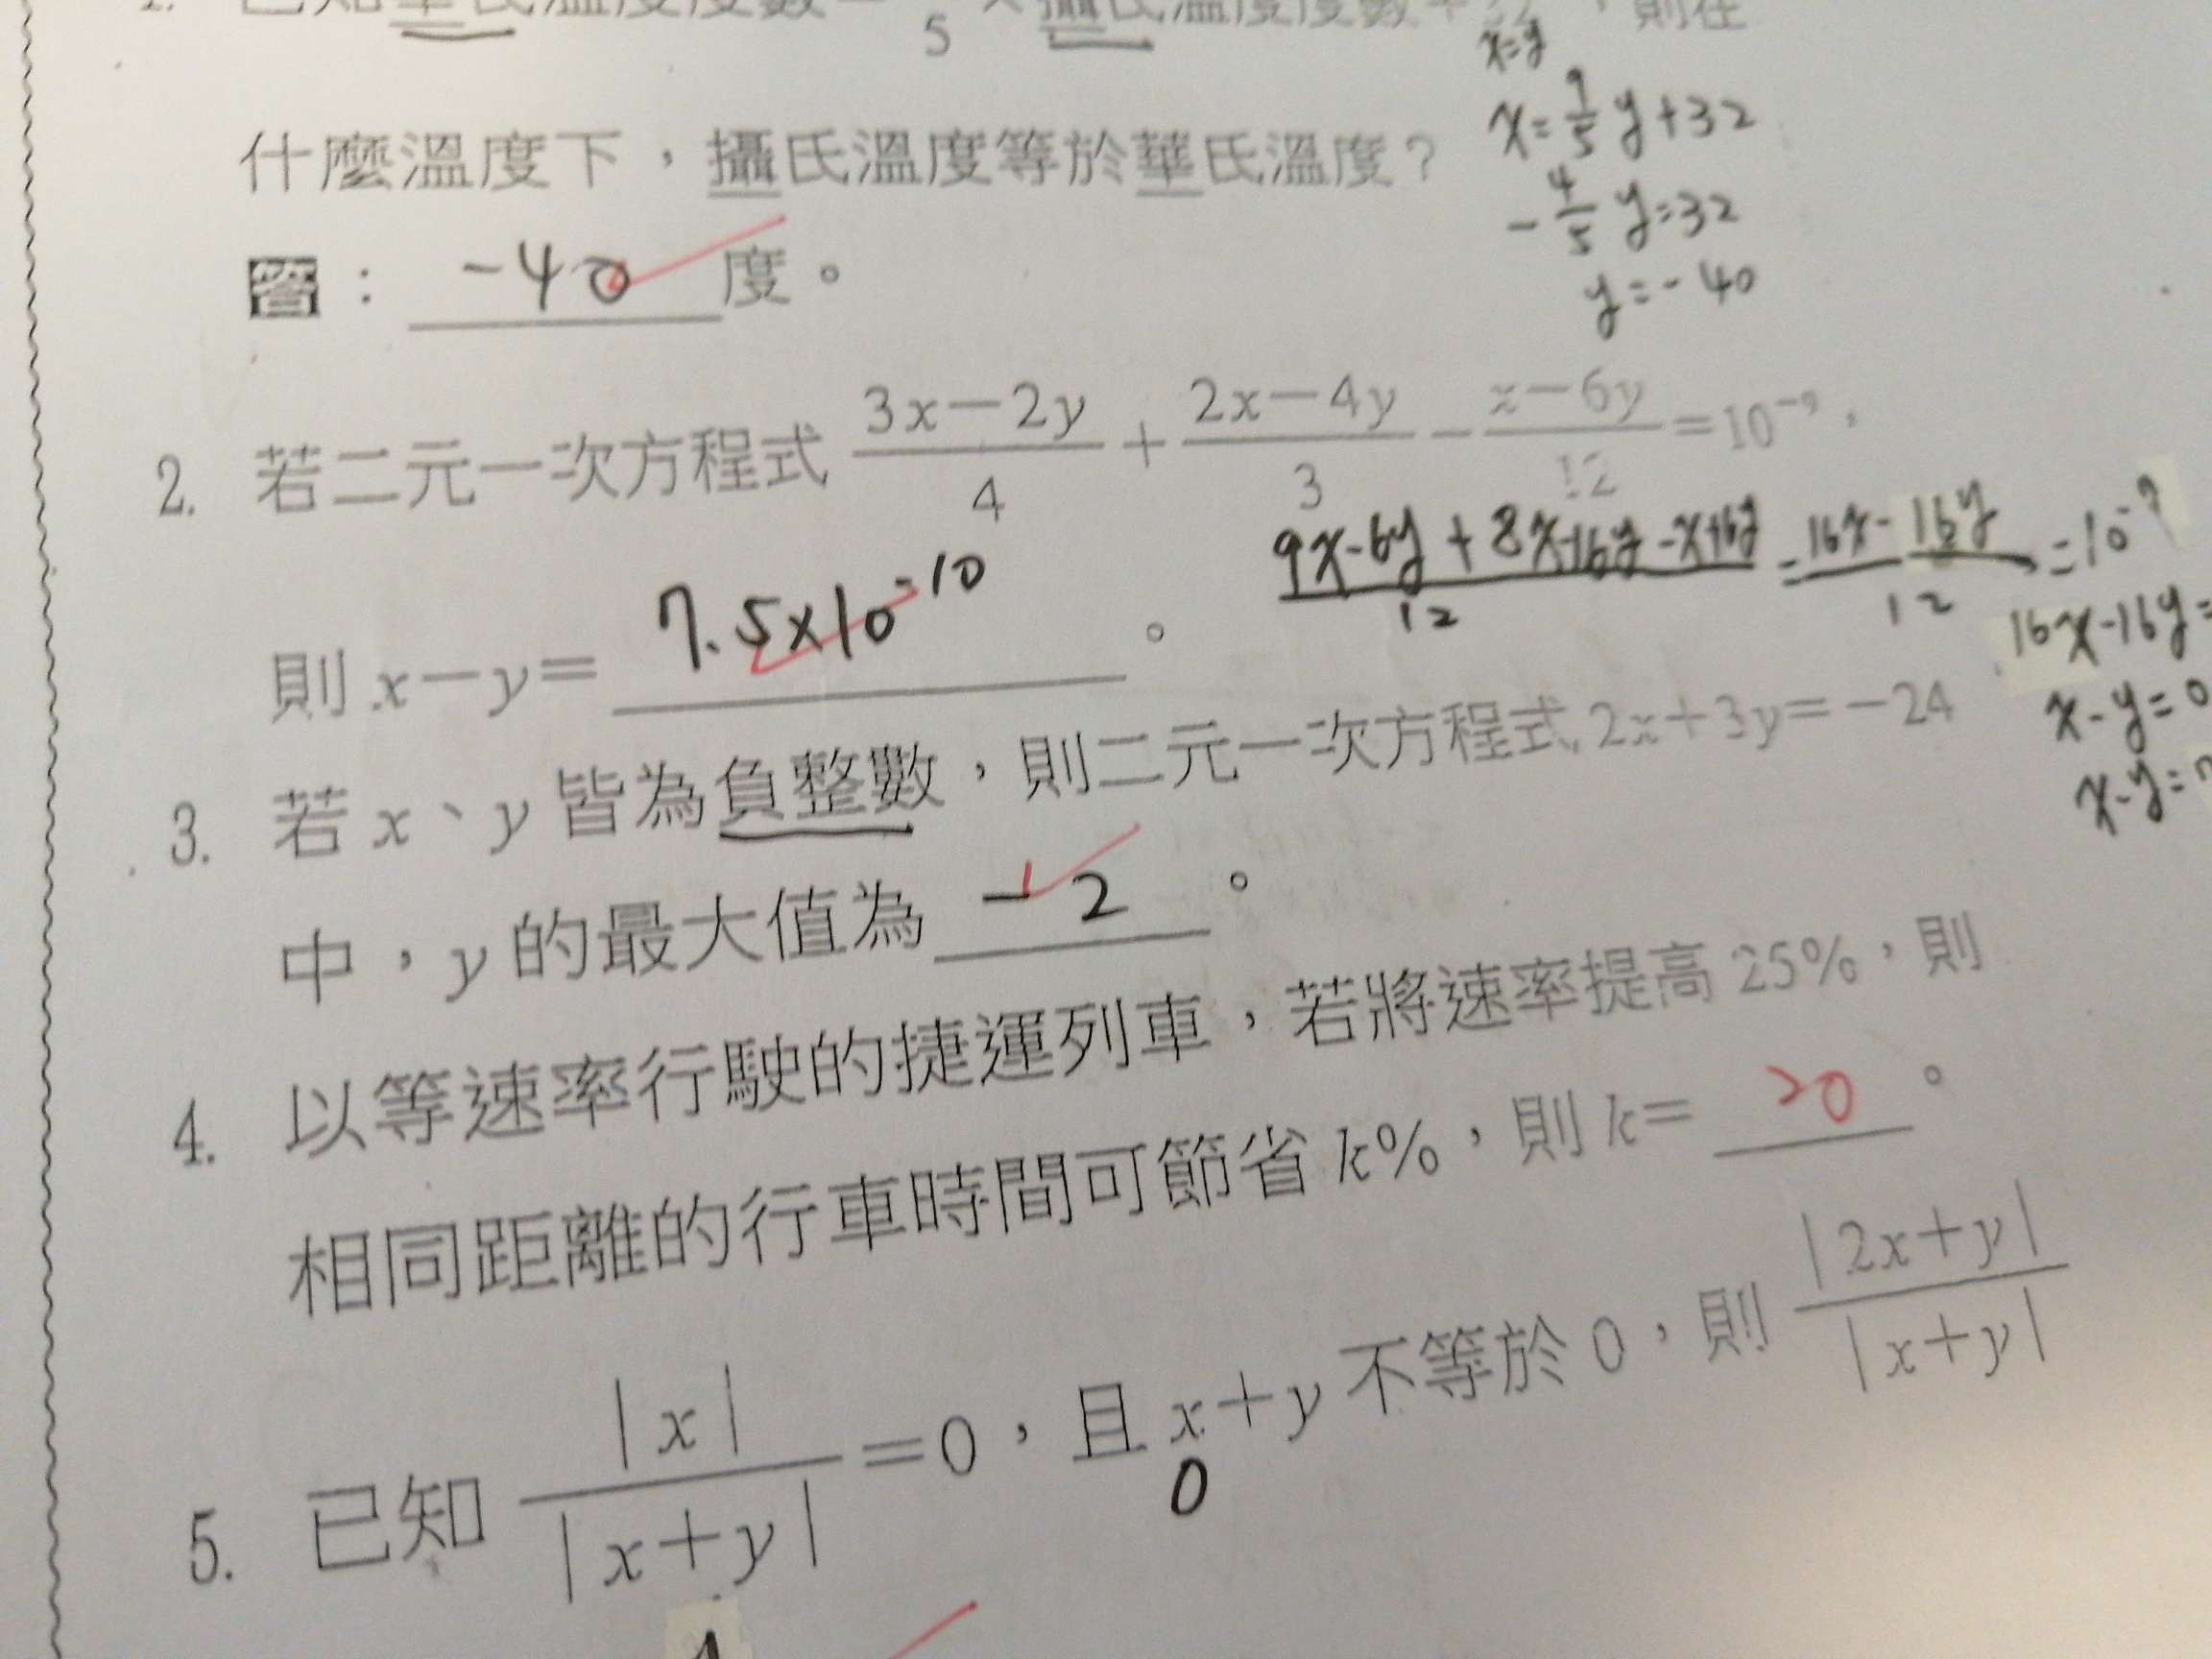 5
x=y
什麼溫度下，攝氏溫度等於華氏溫度？
x=9/5 y+32
-4/5 y=32
y=-40
答： -40 度。
2. 若二元一次方程式 (3x-2y)/4 + (2x-4y)/3 - (x-6y)/12 =10⁻⁹，
(9x-6y+8x-16y-x+6y)/12 = (16x-16y)/12 =10⁻⁹
16x-16y=
x-y=0
x-y=
則 x-y= 7.5×10⁻¹⁰ 。
3. 若 x、y 皆為負整數，則二元一次方程式 2x+3y=-24
中，y 的最大值為 -2 。
4. 以等速率行駛的捷運列車，若將速率提高 25%，則
相同距離的行車時間可節省 k%，則 k= 20 。
5. 已知 |x|/|x+y| =0，且 x+y 不等於 0，則 |2x+y|/|x+y|
0